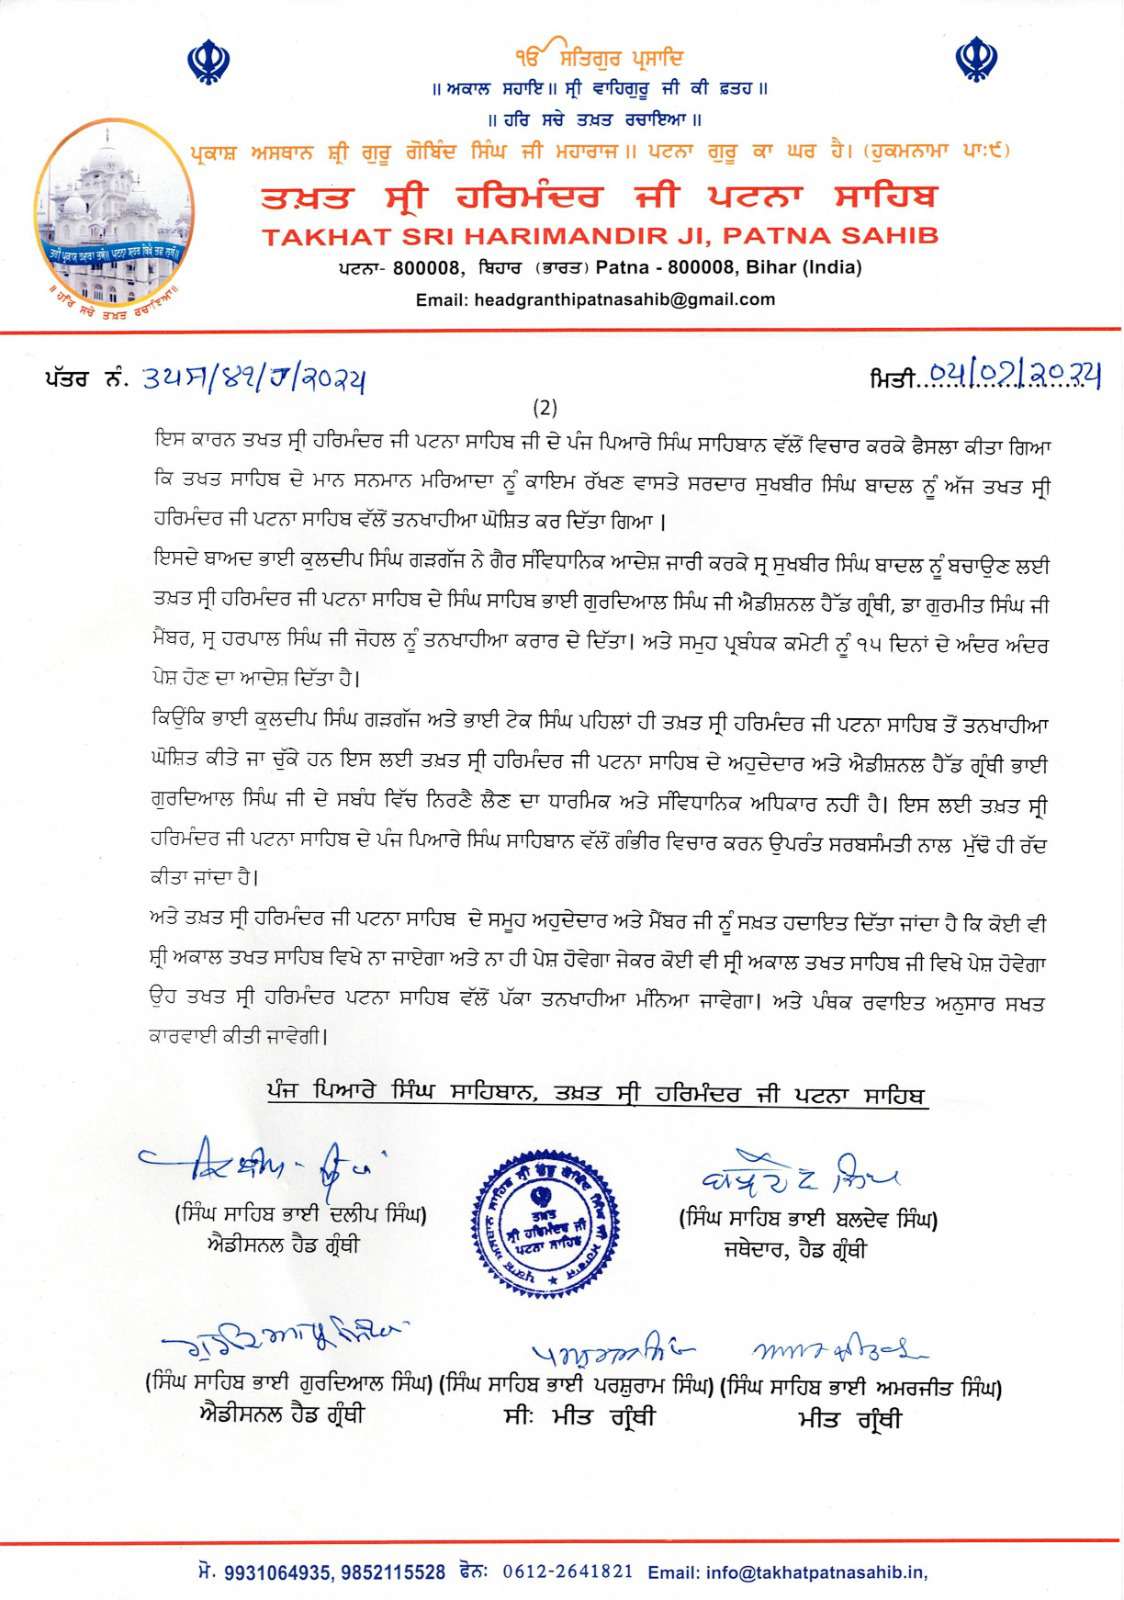 ੴ ਸਤਿਗੁਰ ਪ੍ਰਸਾਦਿ
॥ ਅਕਾਲ ਸਹਾਇ॥ ਸ੍ਰੀ ਵਾਹਿਗੁਰੂ ਜੀ ਕੀ ਫ਼ਤਹ॥
॥ ਹਰਿ ਸਚੇ ਤਖ਼ਤ ਰਚਾਇਆ॥
ਪ੍ਰਕਾਸ਼ ਅਸਥਾਨ ਸ਼੍ਰੀ ਗੁਰੂ ਗੋਬਿੰਦ ਸਿੰਘ ਜੀ ਮਹਾਰਾਜ॥ ਪਟਨਾ ਗੁਰੂ ਕਾ ਘਰ ਹੈ। (ਹੁਕਮਨਾਮਾ ਪਾ:੯)
ਤਖ਼ਤ ਸ੍ਰੀ ਹਰਿਮੰਦਰ ਜੀ ਪਟਨਾ ਸਾਹਿਬ
TAKHAT SRI HARIMANDIR JI, PATNA SAHIB
ਪਟਨਾ- 800008, ਬਿਹਾਰ (ਭਾਰਤ) Patna - 800008, Bihar (India)
Email: headgranthipatnasahib@gmail.com
॥ ਹਰਿ ਸਚੇ ਤਖ਼ਤ ਰਚਾਇਆ॥
ਪੱਤਰ ਨੰ. ੩੫ਸ/੪੧/ਹ/੨੦੨੫ ਮਿਤੀ 05/07/੨੦੨੫
(2)
ਇਸ ਕਾਰਨ ਤਖਤ ਸ੍ਰੀ ਹਰਿਮੰਦਰ ਜੀ ਪਟਨਾ ਸਾਹਿਬ ਜੀ ਦੇ ਪੰਜ ਪਿਆਰੇ ਸਿੰਘ ਸਾਹਿਬਾਨ ਵੱਲੋਂ ਵਿਚਾਰ ਕਰਕੇ ਫੈਸਲਾ ਕੀਤਾ ਗਿਆ
ਕਿ ਤਖਤ ਸਾਹਿਬ ਦੇ ਮਾਨ ਸਨਮਾਨ ਮਰਿਆਦਾ ਨੂੰ ਕਾਇਮ ਰੱਖਣ ਵਾਸਤੇ ਸਰਦਾਰ ਸੁਖਬੀਰ ਸਿੰਘ ਬਾਦਲ ਨੂੰ ਅੱਜ ਤਖਤ ਸ੍ਰੀ
ਹਰਿਮੰਦਰ ਜੀ ਪਟਨਾ ਸਾਹਿਬ ਵੱਲੋਂ ਤਨਖਾਹੀਆ ਘੋਸ਼ਿਤ ਕਰ ਦਿੱਤਾ ਗਿਆ।
ਇਸਦੇ ਬਾਅਦ ਭਾਈ ਕੁਲਦੀਪ ਸਿੰਘ ਗੜਗੱਜ ਨੇ ਗੈਰ ਸੰਵਿਧਾਨਿਕ ਆਦੇਸ਼ ਜਾਰੀ ਕਰਕੇ ਸ੍ਰ ਸੁਖਬੀਰ ਸਿੰਘ ਬਾਦਲ ਨੂੰ ਬਚਾਉਣ ਲਈ
ਤਖ਼ਤ ਸ੍ਰੀ ਹਰਿਮੰਦਰ ਜੀ ਪਟਨਾ ਸਾਹਿਬ ਦੇ ਸਿੰਘ ਸਾਹਿਬ ਭਾਈ ਗੁਰਦਿਆਲ ਸਿੰਘ ਜੀ ਐਡੀਸ਼ਨਲ ਹੈੱਡ ਗ੍ਰੰਥੀ, ਡਾ ਗੁਰਮੀਤ ਸਿੰਘ ਜੀ
ਮੈਂਬਰ, ਸ੍ਰ ਹਰਪਾਲ ਸਿੰਘ ਜੀ ਜੋਹਲ ਨੂੰ ਤਨਖਾਹੀਆ ਕਰਾਰ ਦੇ ਦਿੱਤਾ। ਅਤੇ ਸਮੁਹ ਪ੍ਰਬੰਧਕ ਕਮੇਟੀ ਨੂੰ ੧੫ ਦਿਨਾਂ ਦੇ ਅੰਦਰ ਅੰਦਰ
ਪੇਸ਼ ਹੋਣ ਦਾ ਆਦੇਸ਼ ਦਿੱਤਾ ਹੈ।
ਕਿਉਂਕਿ ਭਾਈ ਕੁਲਦੀਪ ਸਿੰਘ ਗੜਗੱਜ ਅਤੇ ਭਾਈ ਟੇਕ ਸਿੰਘ ਪਹਿਲਾਂ ਹੀ ਤਖ਼ਤ ਸ੍ਰੀ ਹਰਿਮੰਦਰ ਜੀ ਪਟਨਾ ਸਾਹਿਬ ਤੋਂ ਤਨਖਾਹੀਆ
ਘੋਸ਼ਿਤ ਕੀਤੇ ਜਾ ਚੁੱਕੇ ਹਨ ਇਸ ਲਈ ਤਖ਼ਤ ਸ੍ਰੀ ਹਰਿਮੰਦਰ ਜੀ ਪਟਨਾ ਸਾਹਿਬ ਦੇ ਅਹੁਦੇਦਾਰ ਅਤੇ ਐਡੀਸ਼ਨਲ ਹੈੱਡ ਗ੍ਰੰਥੀ ਭਾਈ
ਗੁਰਦਿਆਲ ਸਿੰਘ ਜੀ ਦੇ ਸਬੰਧ ਵਿੱਚ ਨਿਰਣੈ ਲੈਣ ਦਾ ਧਾਰਮਿਕ ਅਤੇ ਸੰਵਿਧਾਨਿਕ ਅਧਿਕਾਰ ਨਹੀਂ ਹੈ। ਇਸ ਲਈ ਤਖ਼ਤ ਸ੍ਰੀ
ਹਰਿਮੰਦਰ ਜੀ ਪਟਨਾ ਸਾਹਿਬ ਦੇ ਪੰਜ ਪਿਆਰੇ ਸਿੰਘ ਸਾਹਿਬਾਨ ਵੱਲੋਂ ਗੰਭੀਰ ਵਿਚਾਰ ਕਰਨ ਉਪਰੰਤ ਸਰਬਸੰਮਤੀ ਨਾਲ ਮੁੱਢੋ ਹੀ ਰੱਦ
ਕੀਤਾ ਜਾਂਦਾ ਹੈ।
ਅਤੇ ਤਖ਼ਤ ਸ੍ਰੀ ਹਰਿਮੰਦਰ ਜੀ ਪਟਨਾ ਸਾਹਿਬ ਦੇ ਸਮੂਹ ਅਹੁਦੇਦਾਰ ਅਤੇ ਮੈਂਬਰ ਜੀ ਨੂੰ ਸਖ਼ਤ ਹਦਾਇਤ ਦਿੱਤਾ ਜਾਂਦਾ ਹੈ ਕਿ ਕੋਈ ਵੀ
ਸ਼੍ਰੀ ਅਕਾਲ ਤਖਤ ਸਾਹਿਬ ਵਿਖੇ ਨਾ ਜਾਏਗਾ ਅਤੇ ਨਾ ਹੀ ਪੇਸ਼ ਹੋਵੇਗਾ ਜੇਕਰ ਕੋਈ ਵੀ ਸ੍ਰੀ ਅਕਾਲ ਤਖਤ ਸਾਹਿਬ ਜੀ ਵਿਖੇ ਪੇਸ਼ ਹੋਵੇਗਾ
ਉਹ ਤਖਤ ਸ੍ਰੀ ਹਰਿਮੰਦਰ ਪਟਨਾ ਸਾਹਿਬ ਵੱਲੋਂ ਪੱਕਾ ਤਨਖਾਹੀਆ ਮੰਨਿਆ ਜਾਵੇਗਾ। ਅਤੇ ਪੰਥਕ ਰਵਾਇਤ ਅਨੁਸਾਰ ਸਖਤ
ਕਾਰਵਾਈ ਕੀਤੀ ਜਾਵੇਗੀ।
ਪੰਜ ਪਿਆਰੇ ਸਿੰਘ ਸਾਹਿਬਾਨ, ਤਖ਼ਤ ਸ੍ਰੀ ਹਰਿਮੰਦਰ ਜੀ ਪਟਨਾ ਸਾਹਿਬ
ਤਖ਼ਤ
ਸ੍ਰੀ ਹਰਿਮੰਦਰ ਜੀ
ਪਟਨਾ ਸਾਹਿਬ
(ਸਿੰਘ ਸਾਹਿਬ ਭਾਈ ਦਲੀਪ ਸਿੰਘ) (ਸਿੰਘ ਸਾਹਿਬ ਭਾਈ ਬਲਦੇਵ ਸਿੰਘ)
ਐਡੀਸਨਲ ਹੈਡ ਗ੍ਰੰਥੀ ਜਥੇਦਾਰ, ਹੈਡ ਗ੍ਰੰਥੀ
(ਸਿੰਘ ਸਾਹਿਬ ਭਾਈ ਗੁਰਦਿਆਲ ਸਿੰਘ) (ਸਿੰਘ ਸਾਹਿਬ ਭਾਈ ਪਰਸ਼ੁਰਾਮ ਸਿੰਘ) (ਸਿੰਘ ਸਾਹਿਬ ਭਾਈ ਅਮਰਜੀਤ ਸਿੰਘ)
ਐਡੀਸਨਲ ਹੈਡ ਗ੍ਰੰਥੀ ਸੀਃ ਮੀਤ ਗ੍ਰੰਥੀ ਮੀਤ ਗ੍ਰੰਥੀ
ਮੋ. 9931064935, 9852115528 ਫੋਨਃ 0612-2641821 Email: info@takhatpatnasahib.in,